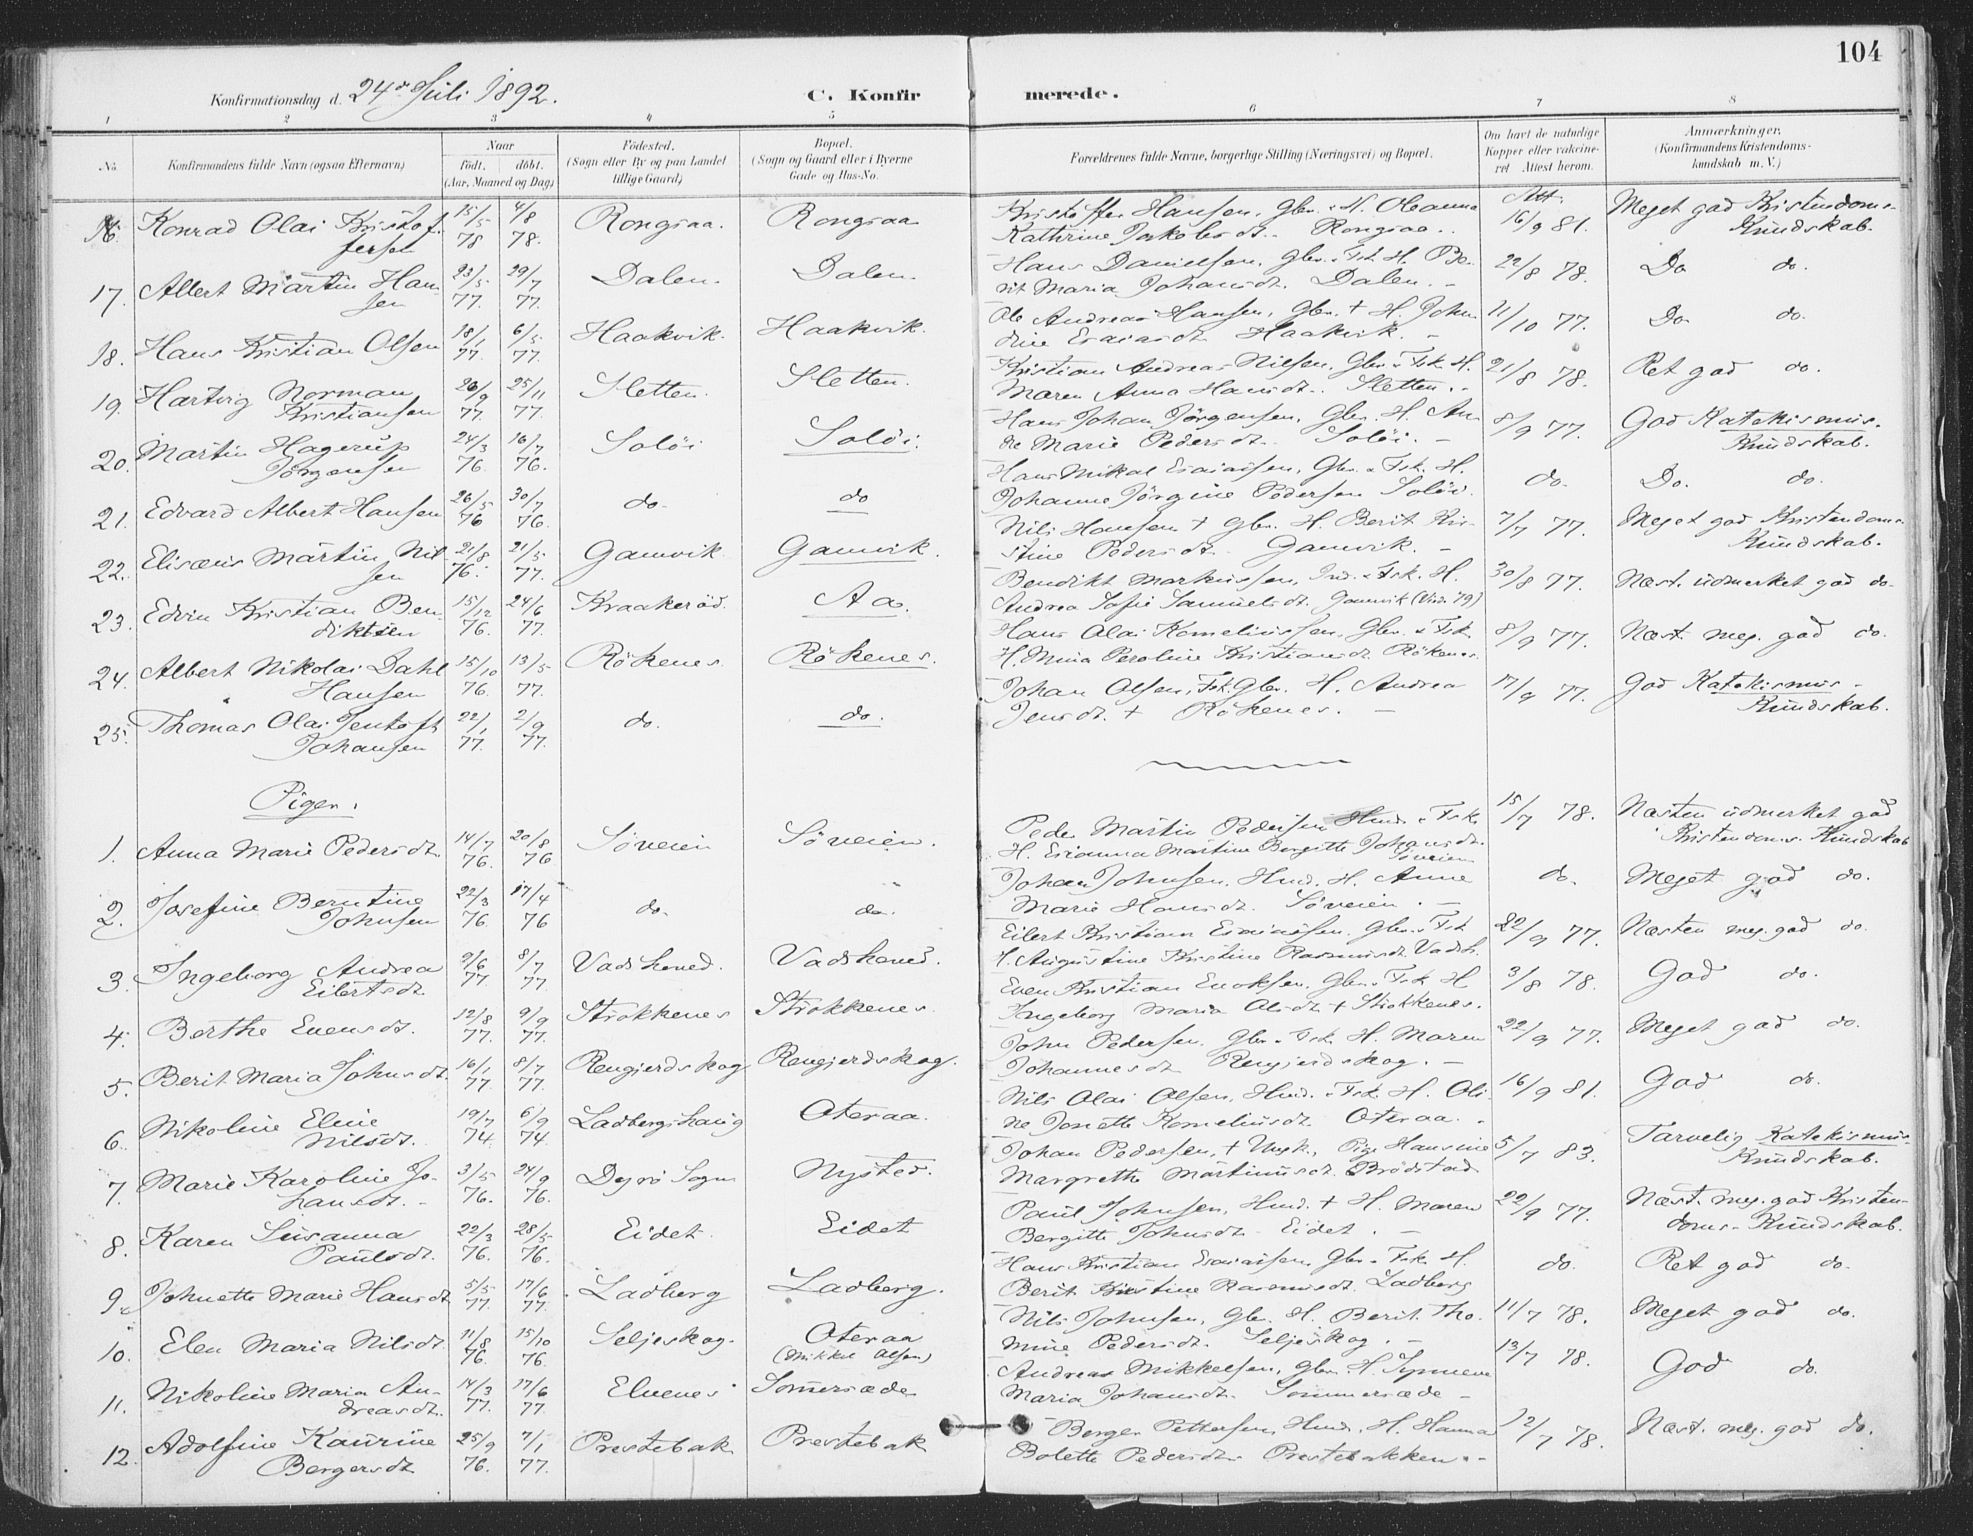 104
Konfirmationsdag d. 24de Juli 1892. C. Konfirmerede.
1 2 3 4 5 6 7 8
No. Konfirmandens fulde Navn (ogsaa Efternavn) Naar født, døbt. (Aar, Maaned og Dag) Fødested. (Sogn eller By og paa Landet tillige Gaard) Bopæl. (Sogn og Gaard eller i Byerne Gade og Hus-No. Forældrenes fulde Navne, borgerlige Stilling (Næringsvei) og Bopæl. Om havt de naturlige Kopper eller vaccineret Attest herom. Anmærkninger. (Konfirmandens Kristendomskundskab m. V.)
16. Konrad Olai Kristoffersen 15/5 78 4/8 78. Rongsaa. Rongsaa Kristoffer Hansen, Gbr. H. Oleanna
Kathrine Jakobsdt. Rongsaa. Att. 16/9 81. Meget god Kristendoms-Kundskab.
17. Albert Martin Hansen 23/5 77. 29/7 77. Dalen. Dalen. Hans Danielsen, Gbr. & Fsk. H. Berit Maria Johansdt. Dalen. 22/8 78. Do do.
18. Hans Kristian Olsen 18/1 77. 6/5 77. Haakvik. Haakvik. Ole Andreas Hansen, Gbr. + H. Johndine Esaiasdt. Haakvik. 11/10 77. Do do.
19. Hartvig Norman Kristiansen 26/9 77. 25/11 77. Sletten. Sletten. Kristian Andreas Nilsen, Gbr. & Fsk. H.
Maren Anna Hansdt. Sletten. 21/8 78. Ret god do.
20. Martin Hagerup Jörgensen 24/3 76. 16/7 76. Solöi Solöi. Hans Johan Jörgensen, Gbr. H. Ane Marie Pedersdt. Solöi. 8/9 77. God Katekismus-Kundskab.
21. Edvard Albert Hansen 26/5 76 30/7 76. do. do Hans Mikal Esaiassen, Gbr. & Fsk. H.
Johanne Jörgine Pedersen Solöi. do. Do. do.
22. Elisæus Martin Nilsen 21/8 76. 21/5 77. Gamvik Gamvik. Nils Hansen + Gbr. H. Berit Kristine Pedersdt. Gamvik. 7/7 77. Meget god Kristendoms-Kundskab.
23. Edvin Kristian Bendiktsen 15/12 76. 24/6 77. Kraakeröd. Aa. Bendikt Markussen, Ind. & Fsk. H.
Andrea Sofie Samuelsdt. Gamvik (Vind. 79) 30/8 77. Næst. udmerket god do.
24. Albert Nikolai Dahl Hansen 15/10 76. 13/5 77. Rökenes. Rökenes. Hans Olai Korneliussen, Gbr. & Fsk.
H. Mina Peroline Kristiansdt. Rökenes. 8/9 77. Næst. meg. god do.
25. Thomas Olai Jentoft Johansen 22/1 77. 2/9 77. do. do. Johan Olsen, Fsk. Gbr. H. Andrea
Jensdt. + Rökenes. 17/9 77. God Katekismus-Kundskab.
Piger.
1. Anna Marie Pedersdt. 14/7 76. 20/8 76 Söveien Söveien. Peder Martin Pedersen Husm. & Fsk.
H. Esianna Martine Bergitte Johansdt. Söveien 15/7 78. Næsten udmerket god Kristendoms-Kundskab
2. Josefine Berntine Johnsen 22/3 76 17/4 76 do. do. Johan Johnsen, Husm. H. Anne
Marie Hansdt. Söveien. do. Meget god do.
3. Ingeborg Andrea Eilertsdt. 2/6 77. 8/7 77. Vadshoved. Vadshoved. Eilert Kristian Esaiassen, Gbr. & Fsk
H. Augustine Kristine Rasmusdt. Vadsh. 22/9 77. Næsten meg. god do.
4. Berthe Evensdt. 12/8 77. 9/9 77. Strokkenes Strokkenes. Even Kristian Enoksen, Gbr. & Fsk. H
Ingeborg Maria Olsdt + Strokkenes. 3/8 78. God do.
5. Berit Maria Johnsdt. 16/1 77. 8/7 77. Rengjerdskog Rengjerdskog. John Pedersen, Gbr. & Fsk. H. Maren
Johannesdt. Rengjerdskog. 22/9 77. Meget god do.
6. Nikoline Eline Nilsdt. 19/7 74. 6/9 74. Ladbergshaug Oteraa. Nils Olai Olsen, Husm. & Fsk. H. Oline Jonette Korneliusdt. Oteraa. 16/9 81. God do.
7. Marie Karoline Johansdt. 3/5 76. 24/9 76. Dyrö Sogn Nysted. Johan Pedersen, + Ungk., Pige Hansine
Margrethe Martinusdt. Brödstad 5/7 83. Tarvelig Katekismus-Kundskab.
8. Karen Susanna Paulsdt. 22/3 76. 28/5 76. Eidet. Eidet Paul Johnsen, Husm. + H. Maren
Bergitte Johnsdt. Eidet. 22/9 77. Næst. meg. god Kristendoms-Kundskab.
9. Johnette Marie Hansdt 5/5 77. 17/6 77. Ladberg Ladberg. Hans Kristian Esaiassen, Gbr. & Fsk. H.
Berit Kristine Rasmusdt. Ladberg do. Ret god do.
10. Elen Maria Nilsdt. 11/8 76. 15/10 76. Seljeskog. Oteraa (Mikkel Olsen) Nils Johnsen, Gbr. H. Berit Thomine Pedersdt. Seljeskog. 11/7 78. Meget god do.
11. Nikoline Maria Andreasdt. 14/3 77. 17/6 77. Elvenes Sommersæde Andreas Mikkelsen, Gbr. H. Synneve
Maria Johansdt. Sommersæde 13/7 78. God do.
12. Adolfine Kaurine Bergersdt. 25/9 76. 7/1 77. Prestebak Prestebak Berger Pettersen, Husm. H. Hanna
Bolette Pedersdt. Prestebakken. 12/7 78. Næst. meg. god do.